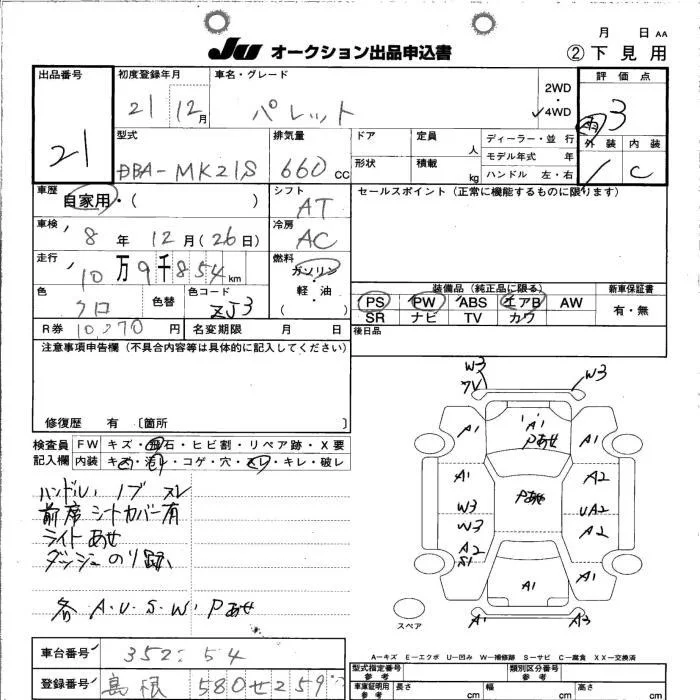 月 日 AA
JU オークション出品申込書 ② 下見用
出品番号 初度登録年月 車名・グレード 2WD ・ 4WD 評価点
21 21 12月 パレット 雨 3
型式 排気量 ドア 定員 人 ディーラー・並 行 外装 内装
DBA-MK21S 660 CC 形状 積載 kg モデル年式 年 C
ハンドル 左・右
車歴 自家用・( ) シフト AT セールスポイント(正常に機能するものに限ります)
車検 8年 12月(26日) 冷房 AC
走行 10万9千854km 燃料 ガソリン・軽油 ( )
装備品(純正品に限る) 新車保証書
色 クロ 色替 色コード ZJ3 PS PW ABS エアB AW 有・無
SR ナビ TV カワ
R券 10270円 名変期限 月 日 後日品
注意事項申告欄(不具合内容等は具体的に記入してください)
修復歴 有 〔箇所 〕
検査員 FW キズ・飛石・ヒビ割・リペア跡・X要
記入欄 内装 キズ・汚れ・コゲ・穴・スレ・キレ・破レ
ハンドル、ノブ スレ
前席シートカバー有
ライトあせ
ダッシュのり跡
各 A・U・S・W・Pあせ
W3 W3
A1 A1 Pあせ A1
A1 Pあせ A2
W3 UA2
W3 A2
A2
S1 A1 A1
スペア A1 A3
A-キズ E-エクボ U-凹み W-補修跡 S-サビ C-腐食 XX-交換済
車台番号 352 54
登録番号 島根 580せ259
型式指定番号 参考 類別区分番号 参考
車車証明用 参考 長さ cm 幅 cm 高さ cm